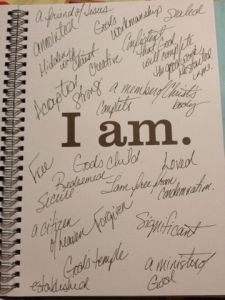 a friend of Jesus
God's
workmanship
Sealed
annointed
Hidden
w/ Christ
Creative
Confident
that God
will complete
the good work
He started
in me.
Accepted
Strong
complete
a member of Christ's
body
I am.
Free
God's child
Loved
Redeemed
Secure
I am free from
condemnation.
a citizen
of heaven
Forgiven
Significant
God's temple
established
a minister of
God